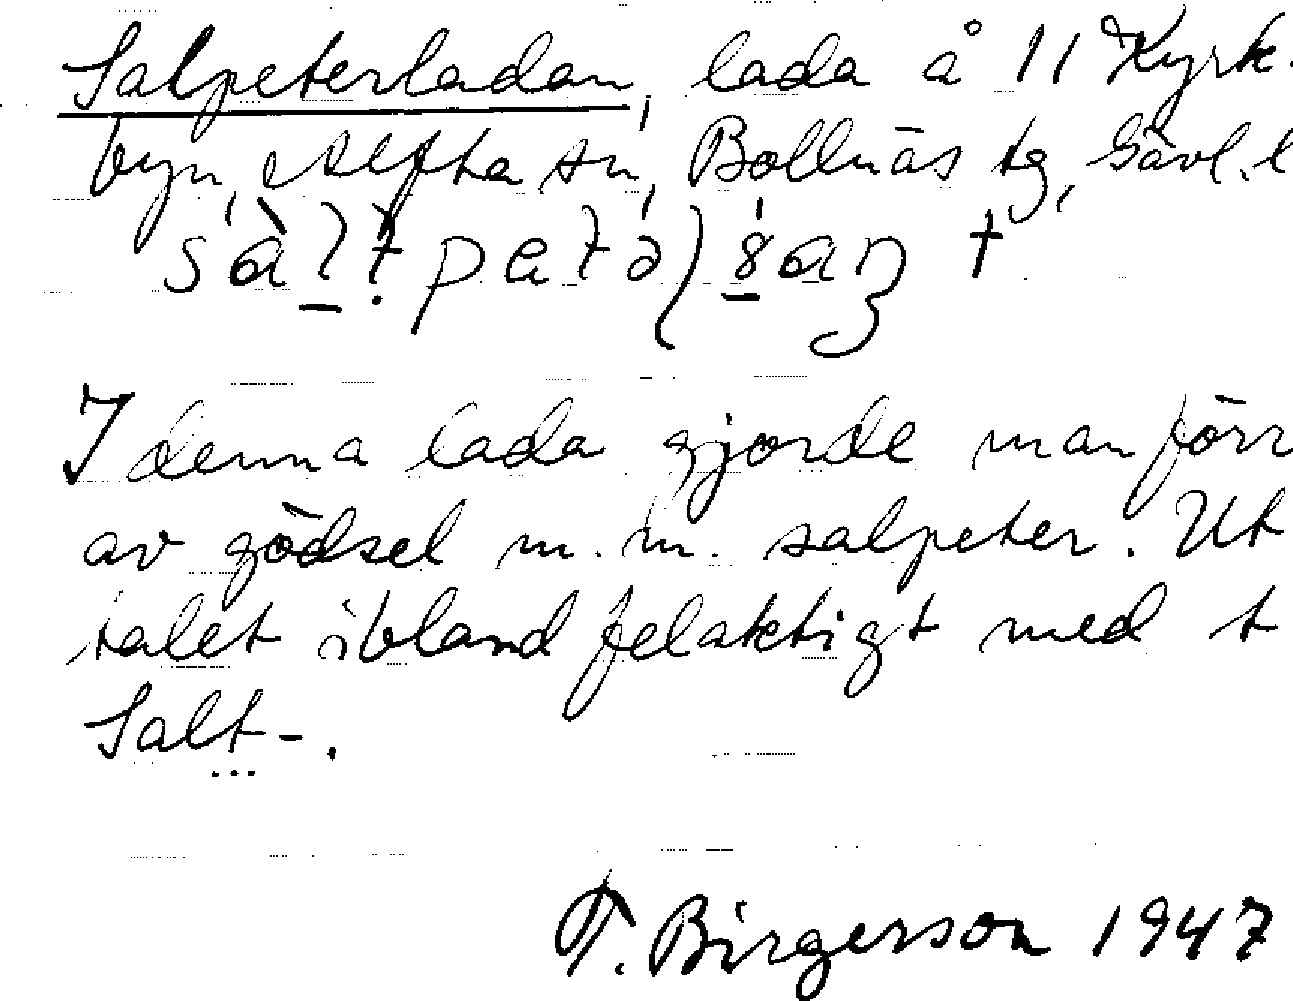 Salpeterladan, lada å 11 Kyrk-
byn, Alfta sn, Bollnäs tg, Gävl. l
I denna lada gjorde man förr
av gödsel m.m. salpeter. Ut
talet ibland felaktigt med t
Salt-.
T. Birgerson 1947